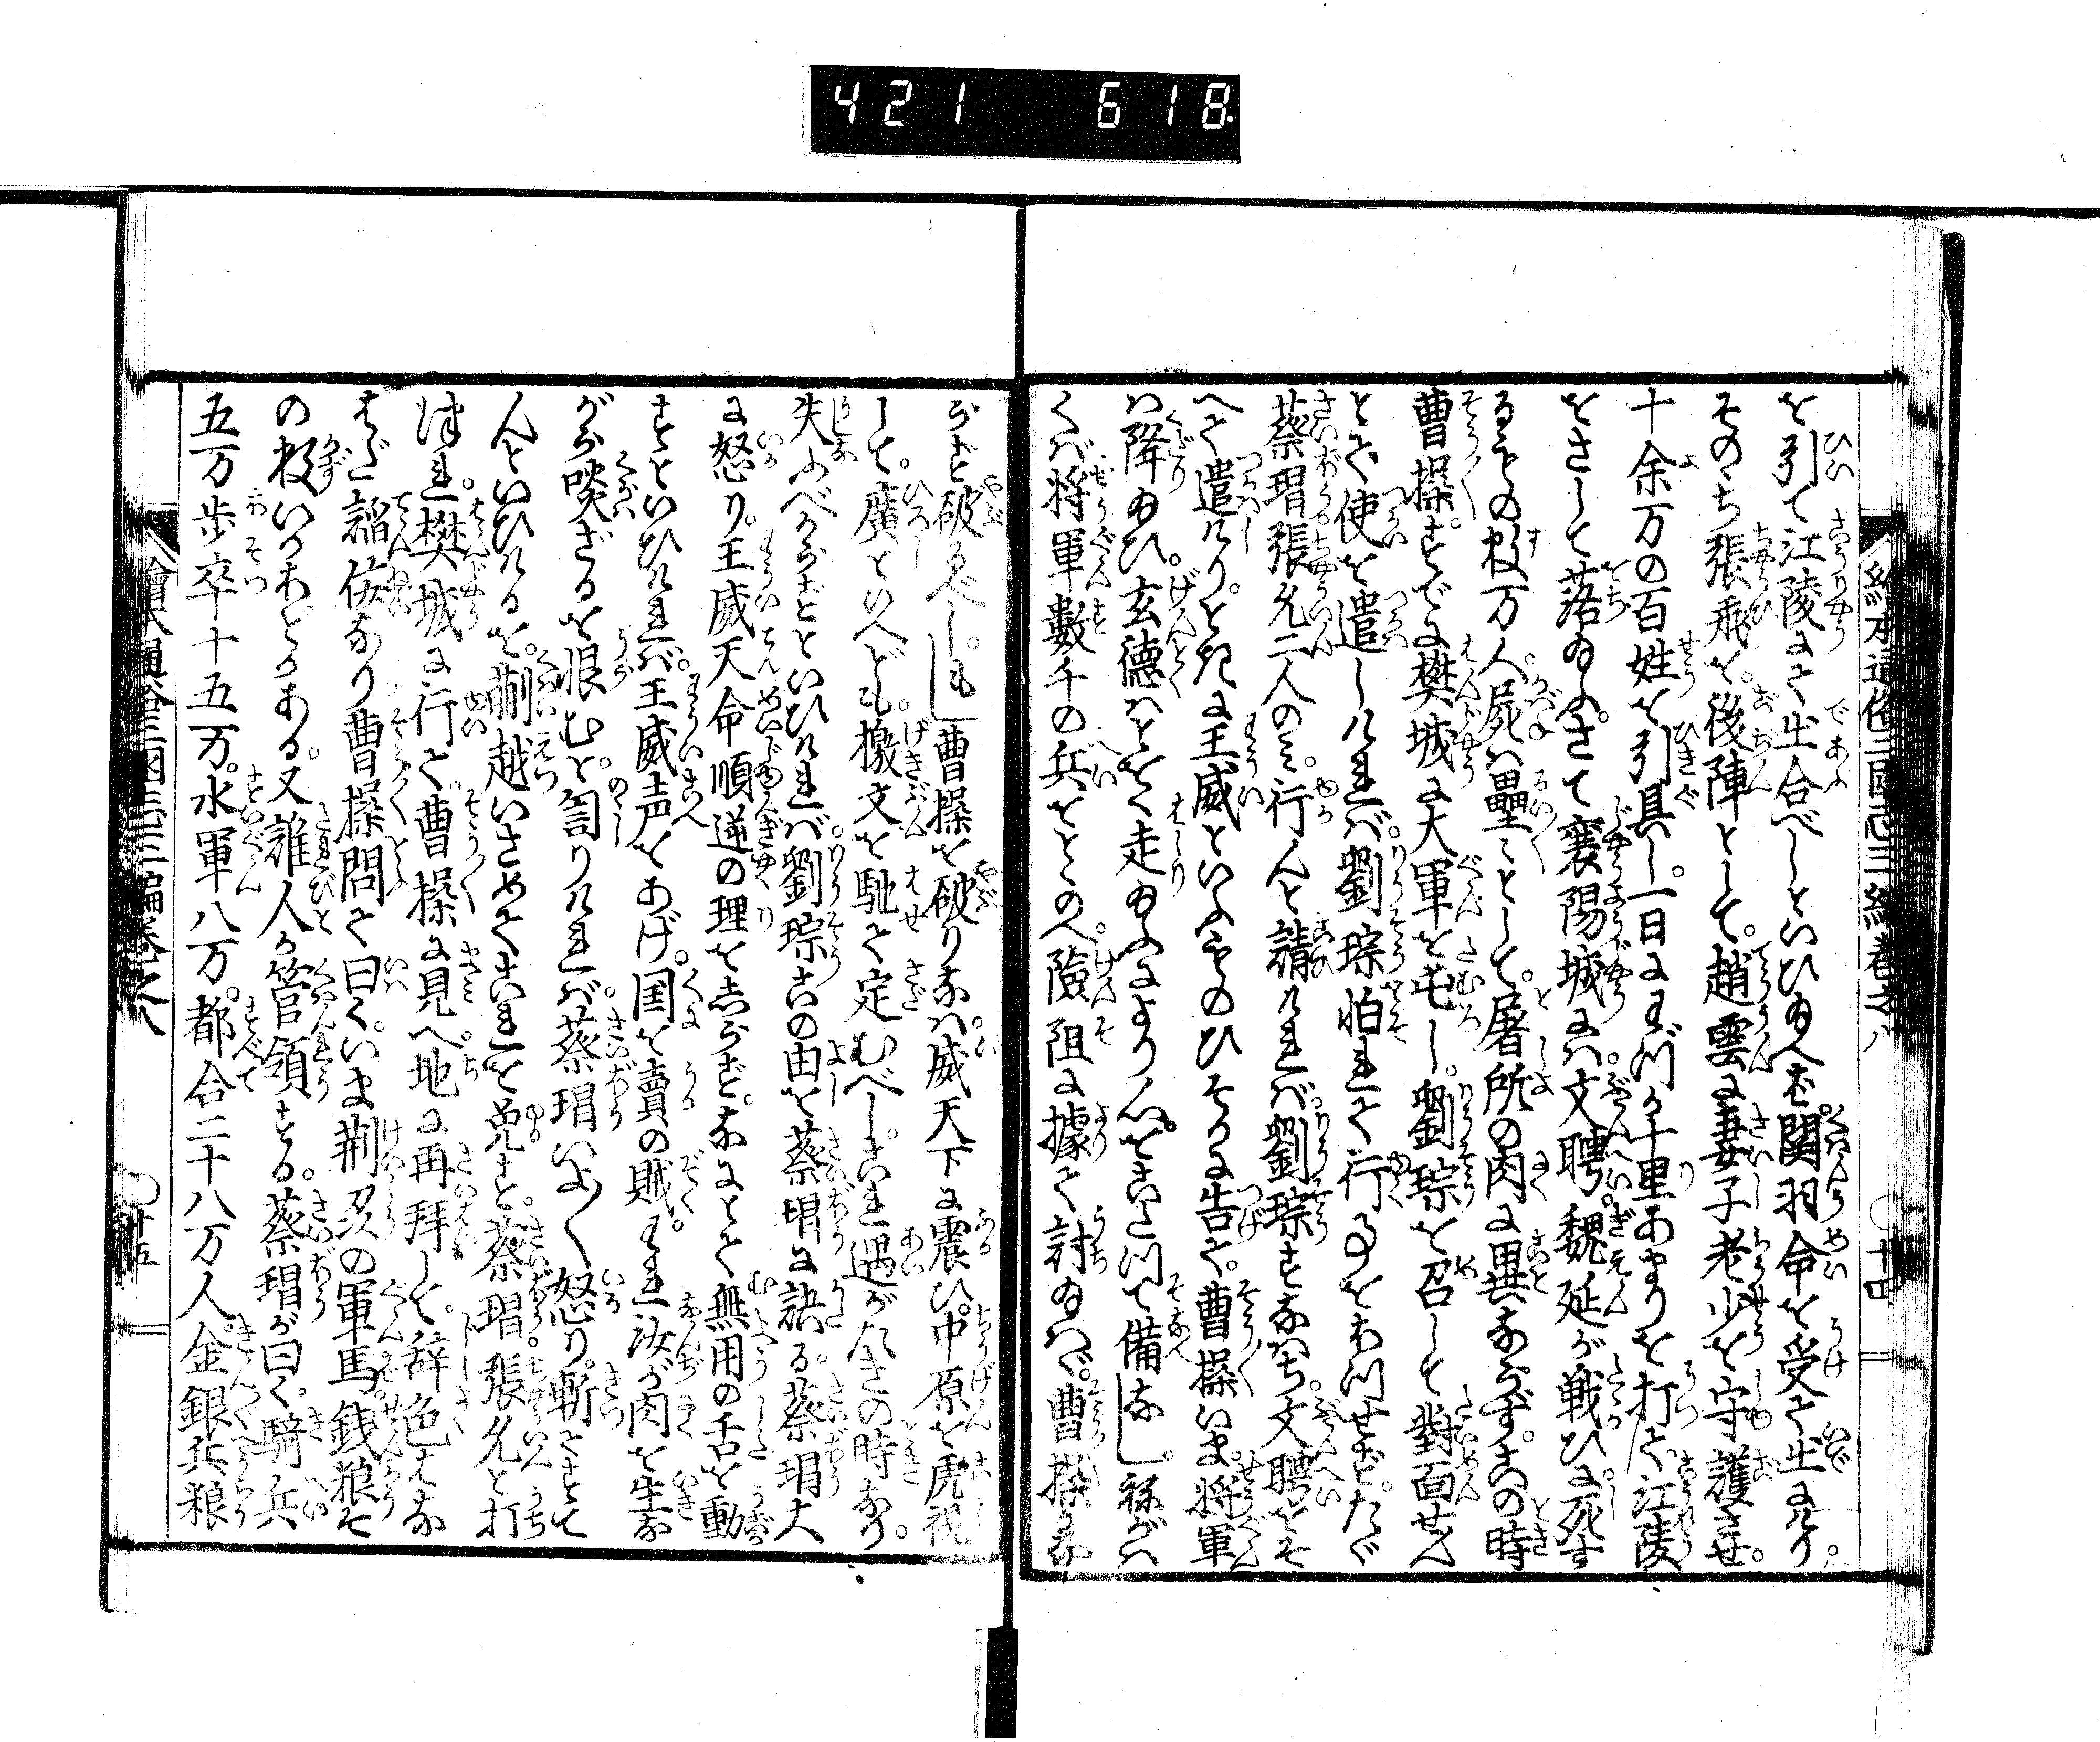 421 618
繪本通俗三國志三編卷之八 〇十四
を引て江陵にて出合べしといひ給へば。関羽命を受て出にけり。
そのゝち張飛を。後陣として。趙雲に妻子老少を守護させ。
十余万の百姓を引具し。一日にわづか十里あまりを打て。江陵
をさして落給ふ。さて襄陽城には。文聘。魏延が戦ひに死す
るもの数万人。屍は壘々として。屠所の肉に異ならず。この時
曹操。すでに樊城に大軍を屯し。劉琮を召して對面せん
とて使を遣しければ。劉琮怕れて行事をあたはせず。たゞ
蔡瑁張允二人のミ。行んと請ければ。劉琮すなはち。文聘をそ
へて遣けり。ときに王威といふものひそかに告て。曹操いま。将軍
ハ降給ひ。玄德ハとく走給ふにより。心をこたつて備なし。祢がハ
くバ将軍數千の兵をとゝのへ。險阻に據て討給はゞ。曹操かな
らず破るべし。もし曹操を破りなバ。威天下に震ひ。中原を虎視
して。廣といへども。檄文を馳て定むべし。これ遇がたきの時なり。
失ふべからずといひければ。劉琮この由を蔡瑁に訴る。蔡瑁大
に怒り。王威天命順逆の理をしらず。なにとて無用の舌を動
すといひければ。王威声をあげ。國を賣の賊。われ汝が肉を生な
がら啖ざるを恨むと。罵りければ。蔡瑁いよ〳〵怒り。斬んとすて
んといひけるを。蒯越いさめてこれを免す。蔡瑁。張允と打
つれ。樊城に行て。曹操に見へ地に再拜して。辞色はな
はだ謟佞なり曹操問て曰く。いま荆州の軍馬。銭粮そ
の数いかほどかある。又誰人か管領する。蔡瑁が曰く。騎兵
五万歩卒十五万。水軍八万。都合二十八万人。金銀兵粮
繪本通俗三國志三編卷之八 〇十五